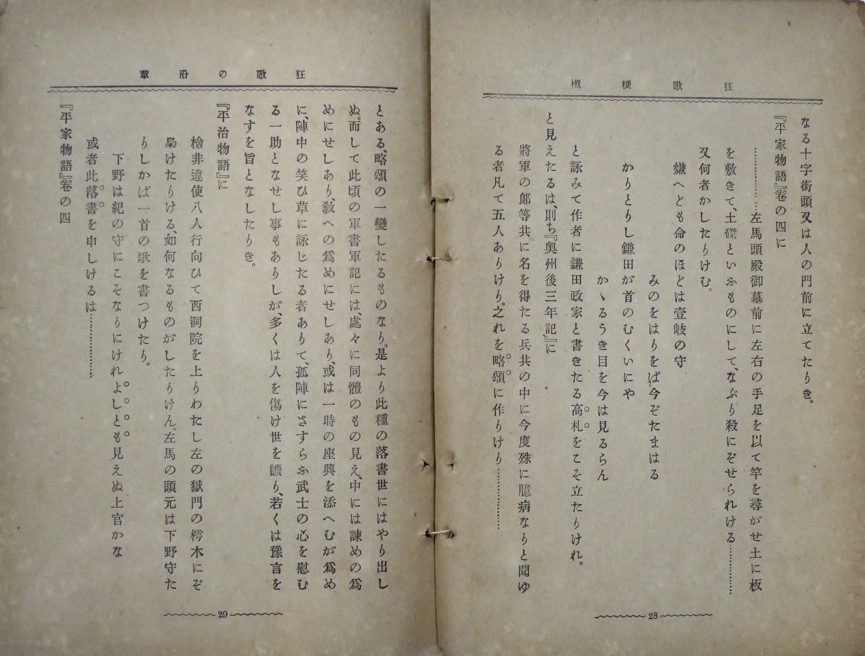 狂歌梗概
なる十字街頭又は人の門前に立てたりき。
『平家物語』卷の四に
…………左馬頭殿御墓前に左右の手足を以て竿を尋がせ土に板
を敷きて、土磔といふものにして、なぶり殺にぞせられける…………
又何者かしたりけむ。
嫌へども命のほどは壹岐の守
みのをはりをば今ぞたまはる
かりとりし鎌田が首のむくいにや
かゝるうき目を今は見るらん
と詠みて作者に鎌田政家と書きたる高札をこそ立たりけれ。
と見えたるは、則ち『奥州後三年記』に
將軍の郎等共に名を得たる兵共の中に今度殊に臆病なりと聞ゆ
る者凡て五人ありけり。之れを略頌に作りけり…………
28
狂歌の沿革
とある、略頌の一變したるものなり、是より此種の落書世にはやり出し
ぬ、而して此頃の軍書軍記には、處々に同體のもの見え、中には諫めの爲
めにせしあり、敎への爲めにせしあり、或は一時の座興を添へむが爲め
に、陣中の笑ひ草に詠じたる者ありて、孤陣にさすらふ武士の心を慰む
る一助となせし事もありしが、多くは人を傷け世を譏り、若くは豫言を
なすを旨となしたりき。
『平治物語』に
檢非違使八人行向ひて西洞院を上りわたし左の獄門の樗木にぞ
梟けたりける、如何なるものがしたりけん。左馬の頭元は下野守た
りしかば一首の歌を書つけたり。
下野は紀の守にこそなりにけれよしとも見えぬ上官かな
或者此落書を申しけるは…………
『平家物語』卷の四
29